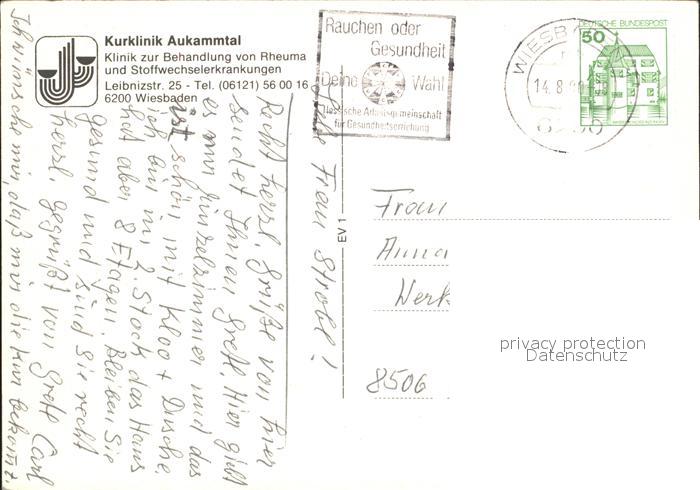 Kurklinik Aukammtal
Klinik zur Behandlung von Rheuma
und Stoffwechselerkrankungen
Leibnizstr. 25 - Tel. (06121) 56 00 16
6200 Wiesbaden
Rauchen oder
Gesundheit
Deine Wahl
Hessische Arbeitsgemeinschaft
für Gesundheitserziehung
WIESBADEN
14.8.
6200
DEUTSCHE BUNDESPOST
50
EV 1
Liebe Frau Strobel!
Recht herzl. Grüße von hier
sendet Ihnen Gretl. Hier gibt
es nur Einzelzimmer und das
ist schön mit Kloo + Dusche.
ich bin im 2. Stock das Haus
hat aber 8 Etagen. Bleiben Sie
gesund und sind Sie recht
herzl. gegrüßt von Gretl Carl
Ich wünsche mir, daß mir die Kur bekomt.
Frau
Anna
Werk
8506
privacy protection
Datenschutz